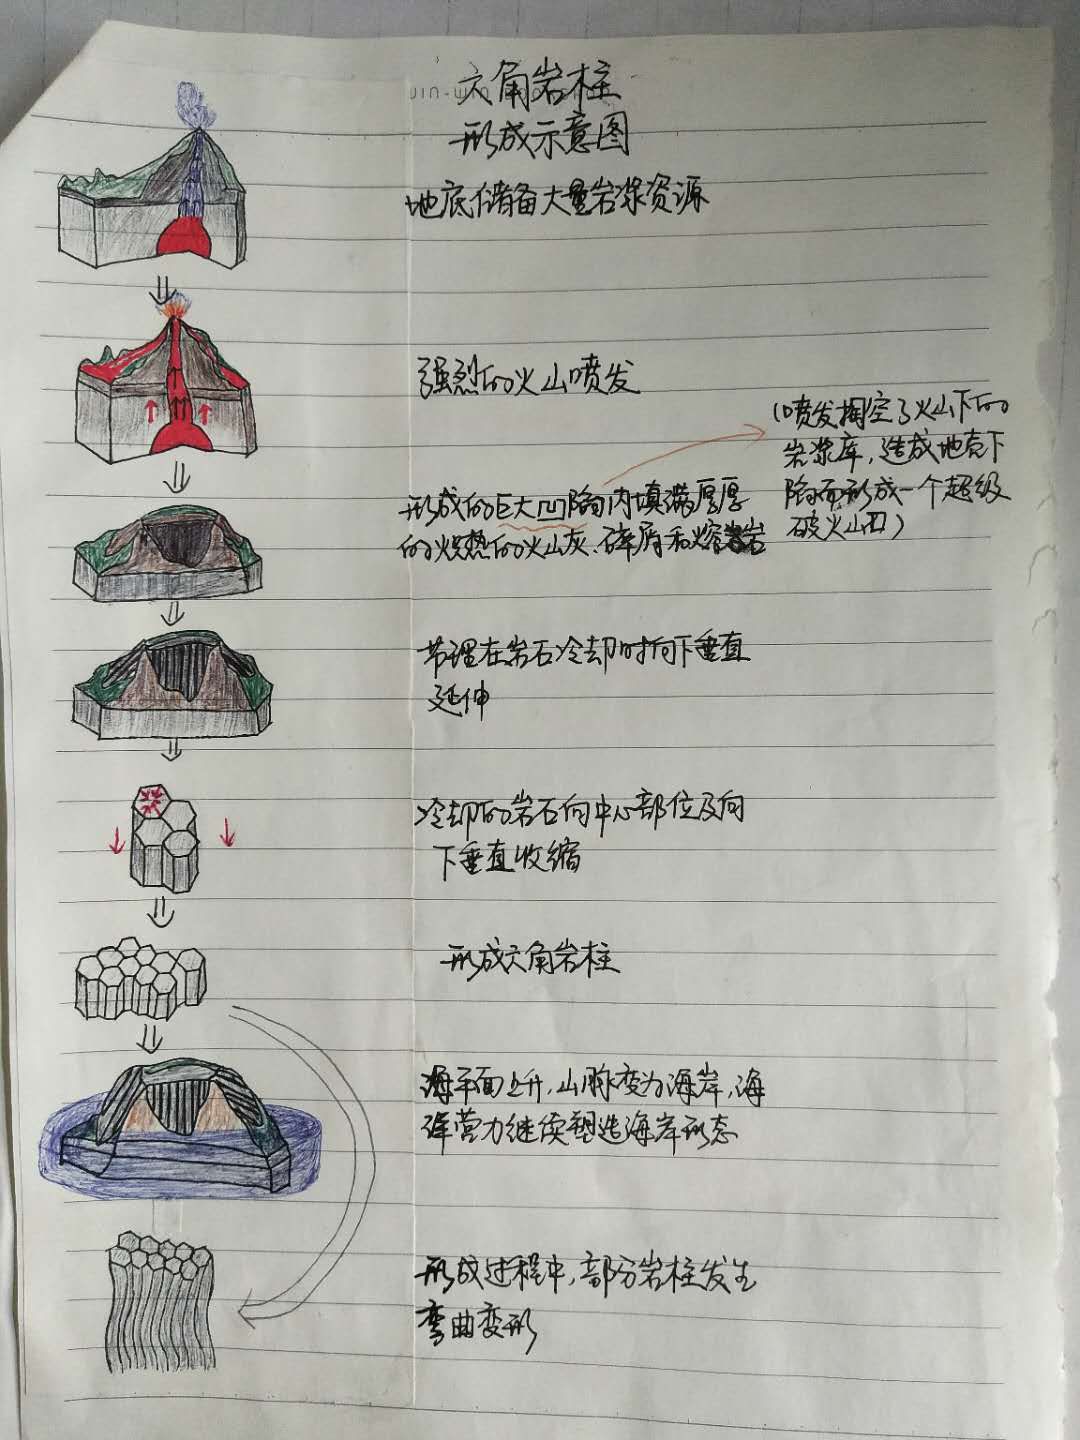 六角岩柱
形成示意图
地底储备大量岩浆资源
强烈的火山喷发
(喷发掏空了火山下的
岩浆库,造成地壳下
陷而形成一个超级
破火山口)
形成的巨大凹陷内填满厚厚
的炽热的火山灰、碎屑和熔岩
节理在岩石冷却时向下垂直
延伸
冷却的岩石向中心部位及向
下垂直收缩
形成六角岩柱
海平面上升,山脉变为海岸,海
洋营力继续塑造海岸形态
形成过程中,部分岩柱发生
弯曲变形